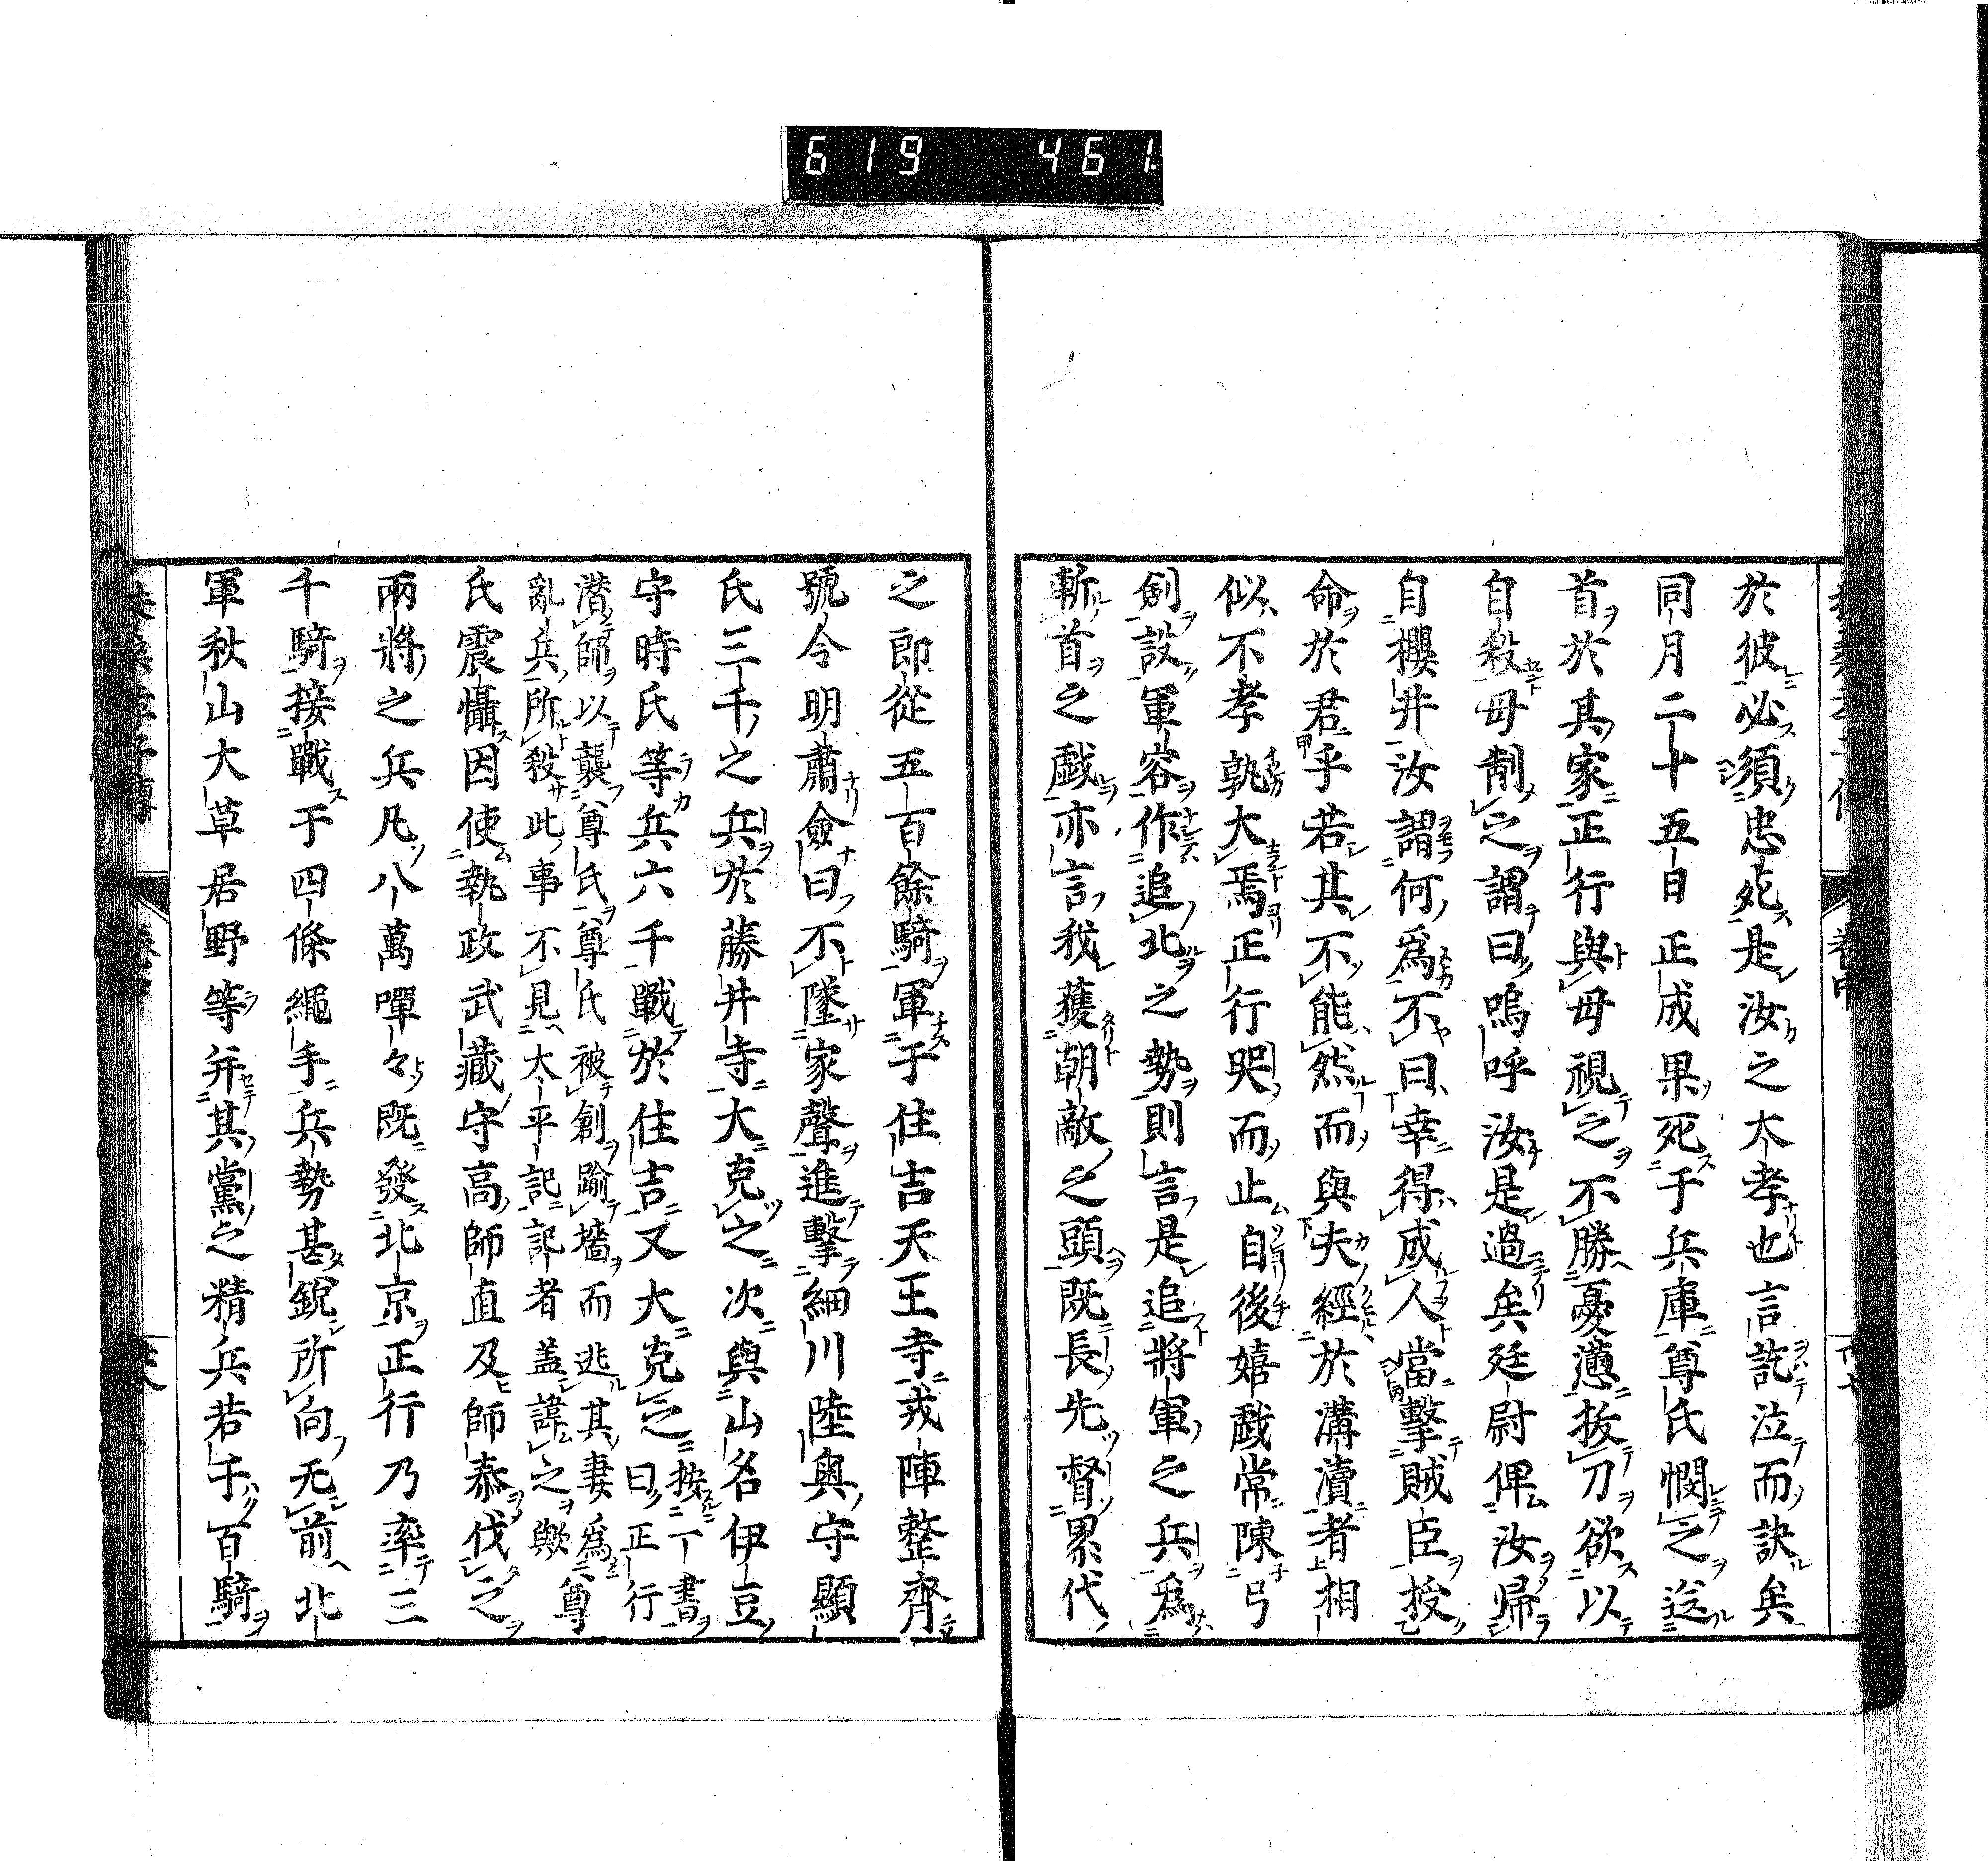 619 461
於彼必須忠死是汝之大孝也言訖泣而訣矣
同月二十五日正成果死于兵庫尊氏憫之送
首於其家正行與母視之不勝憂懣拔刀欲以
自殺母制之謂曰嗚呼汝是過矣廷尉俾汝歸
自櫻井汝謂何爲不曰幸得成人當擊賊臣授
命於君乎若其不能然而與夫經於溝瀆者相
似不孝孰大焉正行哭而止自後嬉戲常陳弓
劍設軍容作追北之勢則言是追將軍之兵爲
斬首之戲亦言我獲朝敵之頭既長先督累代
之郎從五百餘騎軍于住吉天王寺戎陣整齊
號令明肅僉曰不墜家聲進擊細川陸奧守顯
氏三千之兵於藤井寺大克之次與山名伊豆
守時氏等兵六千戰於住吉又大克之按一書曰正行
潜師以襲尊氏尊氏被創踰墻而逃其妻爲尊
亂兵所殺此事不見太平記記者盖諱之歟
氏震懾因使執政武藏守高師直及師泰伐之
兩將之兵凡八萬嘽々既發北京正行乃率三
千騎接戰于四條繩手兵勢甚銳所向无前北
軍秋山大草居野等并其黨之精兵若千百騎